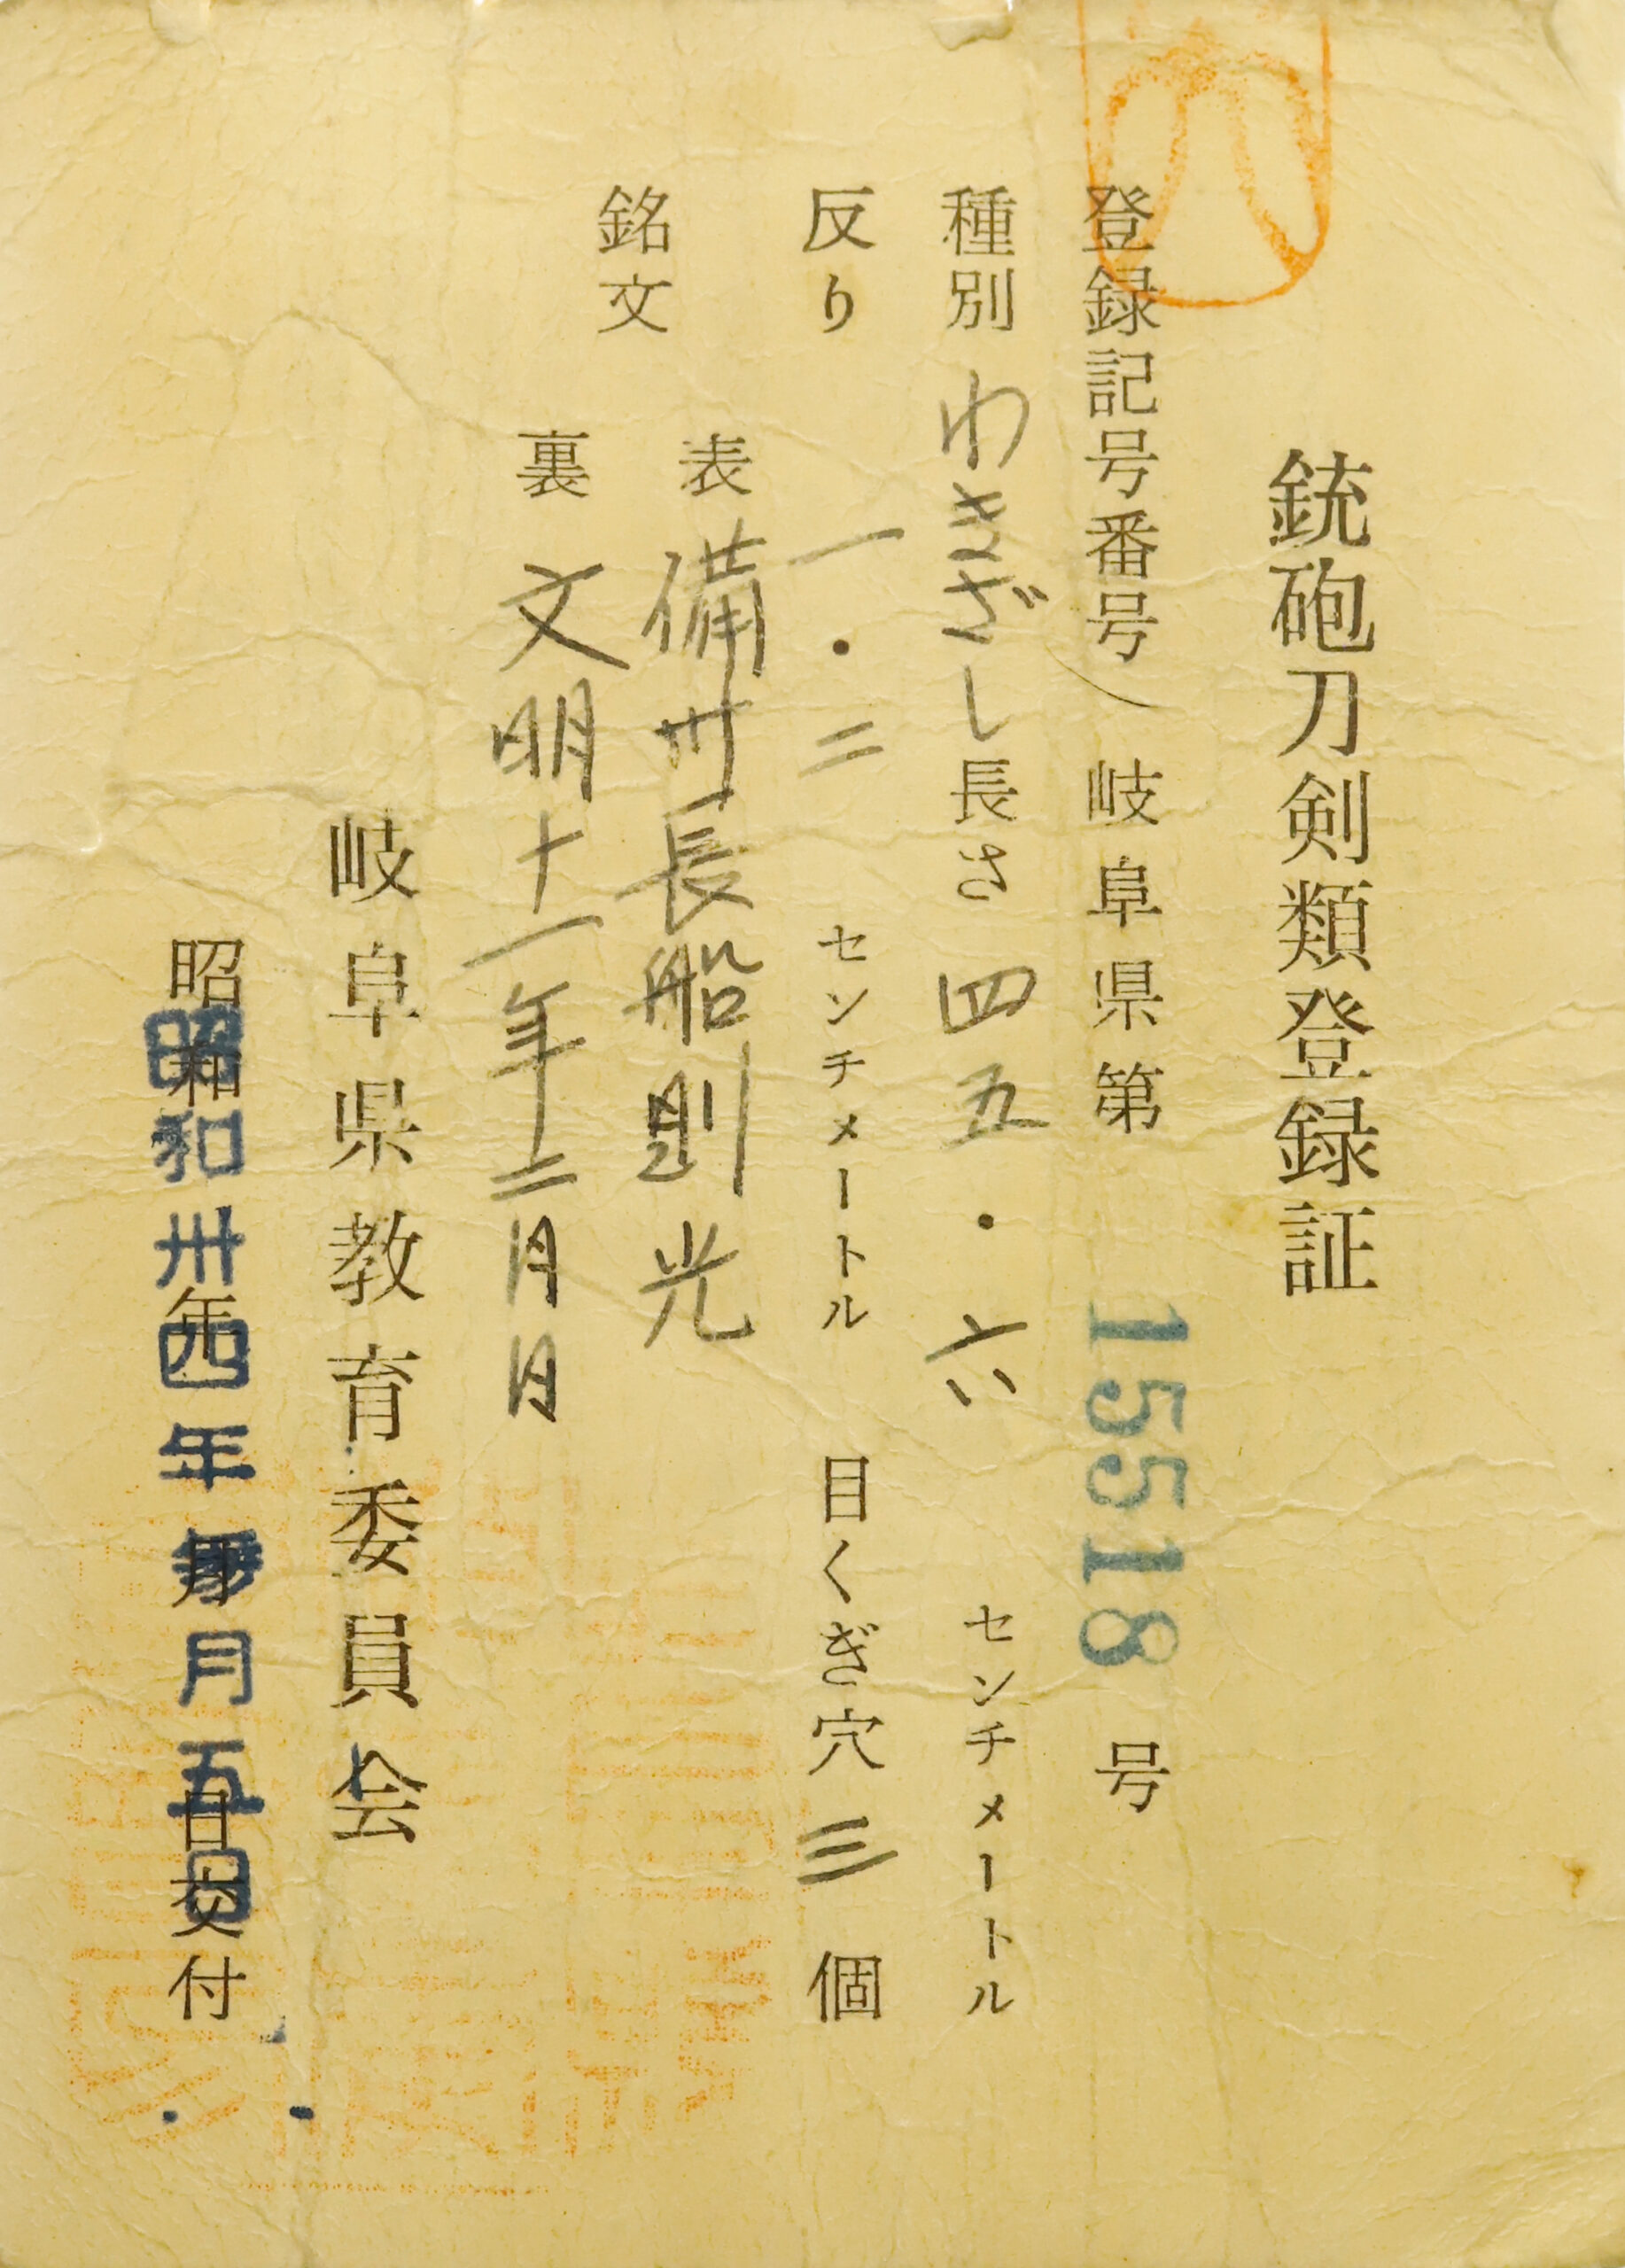 銃砲刀剣類登録証
登録記号番号 岐阜県第 15518 号
種別 わきざし 長さ 四五・六 センチメートル
反り 一・二 センチメートル 目くぎ穴 三 個
銘文
表 備州長船則光
裏 文明十一年二月日
岐阜県教育委員会
昭和 年 月 日交付
昭和卅四年 月五日